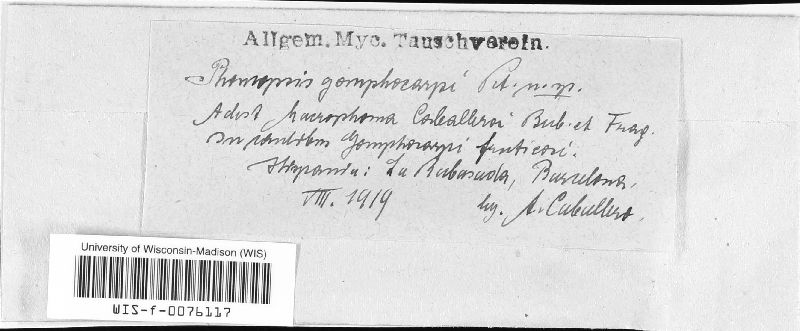 Allgem. Myc. Tauschverein.
Phomopsis gomphocarpi Pet. n. sp.
Adest Macrophoma Caballeroi Bub. et Frag.
In caulibus Gomphocarpi fruticosi.
Hispania: La Rabasada, Barcelona,
VIII. 1919 leg. A. Caballero.
University of Wisconsin-Madison (WIS)
WIS-f-0076117